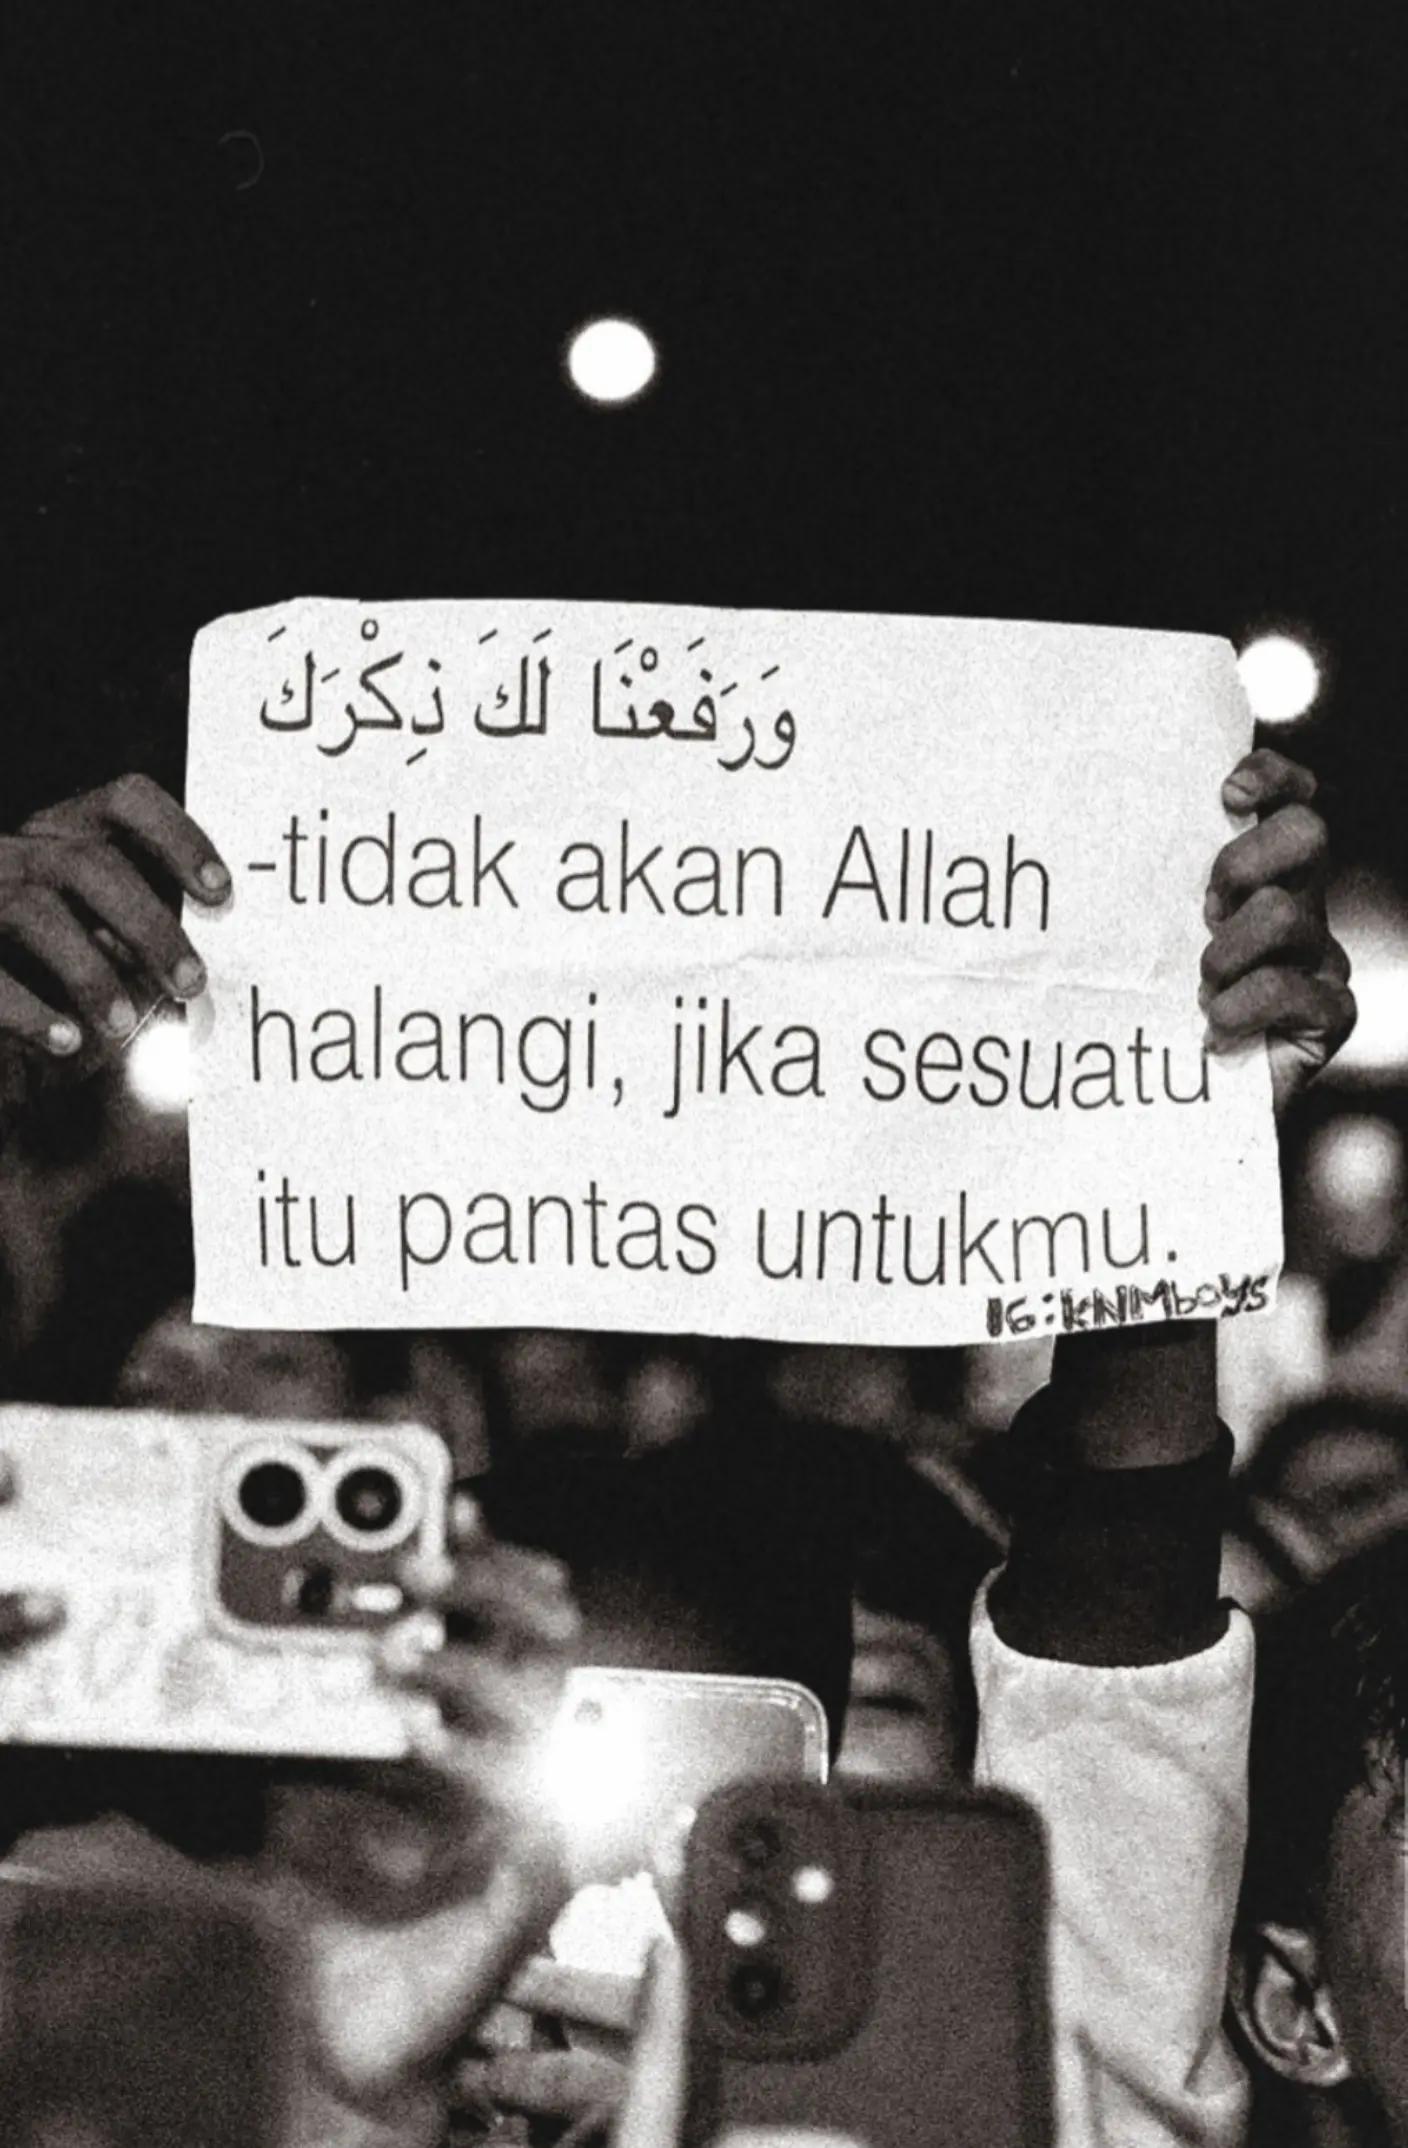 وَرَفَعْنَا لَكَ ذِكْرَكَ
-tidak akan Allah
halangi, jika sesuatu
itu pantas untukmu.
IG:kNMboys